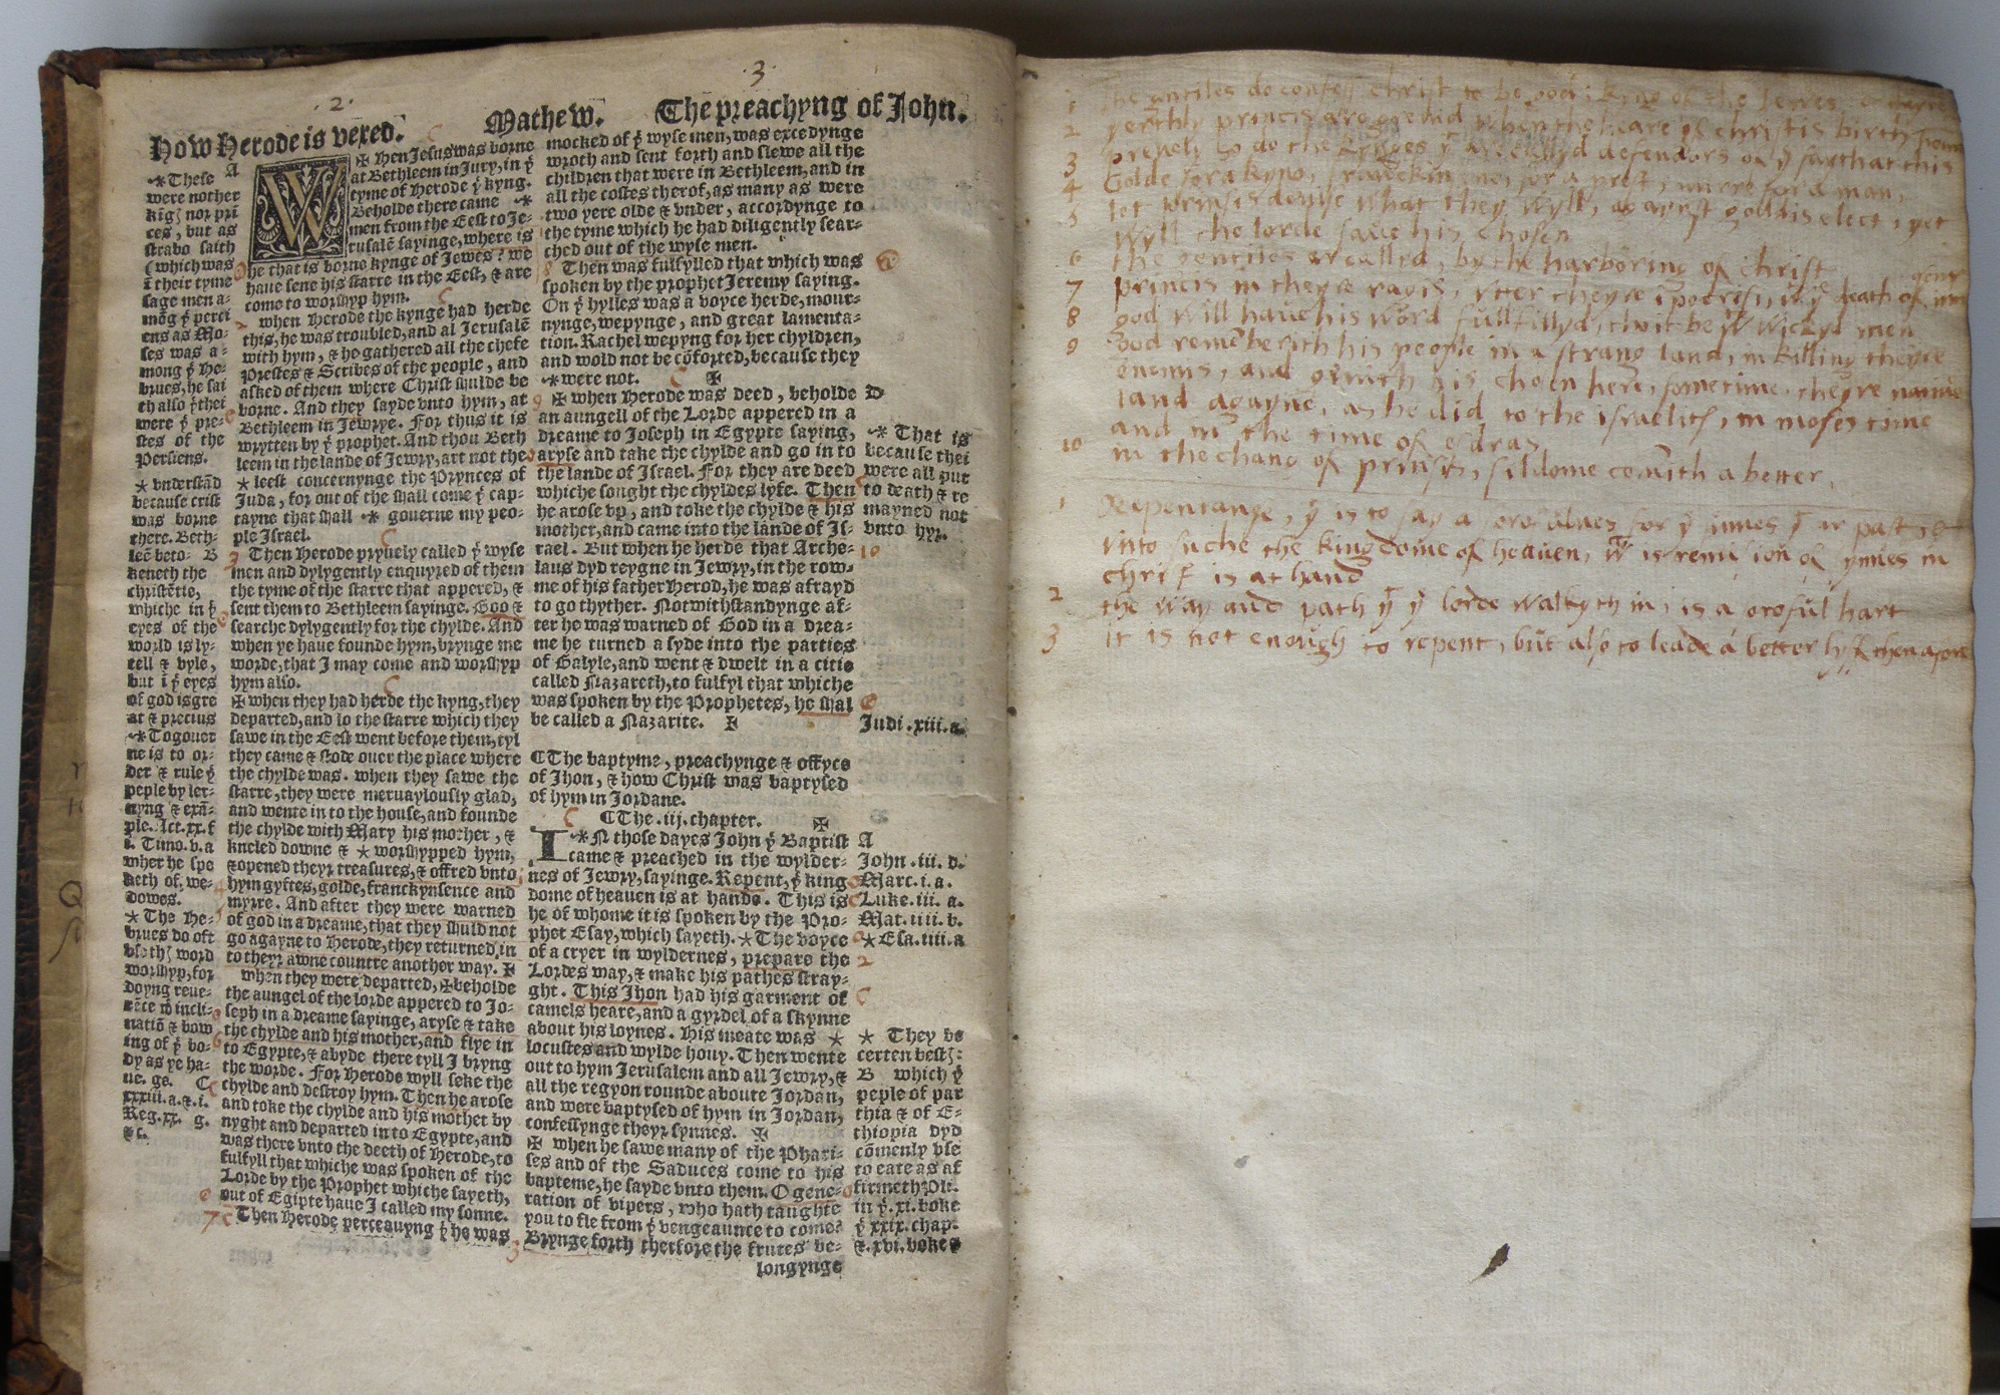 .2.
.3.
How Herode is vexed.
Mathew.
The preachyng of John.
A
⁎* These
were nother
kīgꝭ nor pri
ces, but as
strabo saith
(which was
ī their tyme
sage men a-
mōg ẏ perci
ens as Mo-
ses was a-
mong ẏ He-
brues, he sai
th also ẏ thei
were ẏ pre-
stes of the
Persiens.
* vnderstād
because crist
was borne
there. Beth-
leē beto- B
keneth the
christētie,
whiche in ẏ
eyes of the
world is ly-
tell & vyle,
but ī ẏ eyes
of god is gre
at & precius
⁎* To gouer
ne is to or-
der & rule ẏ
peple by ler-
nyng & exā-
ple. Act. xx. f
i. Timo. v. a
wher he spe
keth of, we-
dowes.
* The He-
brues do oft
vse thꝭ word
worshyp, for
doyng reue-
rēce ẘ incli-
natiō & bow
ing of ẏ bo-
dy as ye ha-
ue. ge. C
xxxiii. a. & .i.
Reg. xx. g.
&c.
W
✠ Hen Jesus was borne
at Bethleem in Jury, in ẏ
tyme of Herode ẏ kyng.
Beholde there came ⁎*
men from the Eest to Je-
rusalē sayinge, where is
he that is borne kynge of Jewes? we
haue sene his starre in the Eest, & are
come to worshyp hym.
when Herode the kynge had herde
this, he was troubled, and al Jerusalē
with hym, & he gathered all the chefe
Prestes & Scribes of the people, and
asked of them where Christ shulde be
borne. And they sayde vnto hym, at
Bethleem in Jewrye. For thus it is
wrytten by ẏ prophet. And thou Beth
leem in the lande of Jewry, art not the
* leest concernynge the Prynces of
Juda, for out of the shall come ẏ cap-
tayne that shall ⁎* gouerne my peo-
ple Israel.
3 Then Herode pryuely called ẏ wyse
men and dylygently enquyred of them
the tyme of the starre that appered, &
sent them to Bethleem sayinge. Goo &
searche dylygently for the chylde. And
when ye haue founde hym, brynge me
worde, that I may come and worshyp
hym also.
✠ when they had herde the kyng, they
departed, and lo the starre which they
sawe in the Eest went before them, tyl
they came & stode ouer the place where
the chylde was. when they sawe the
starre, they were meruaylously glad,
and wente in to the house, and founde
the chylde with Mary his mother, &
kneled downe & * worshypped hym,
& opened theyr treasures, & offred vnto
hym gyftes, golde, franckynsence and
myrre. And after they were warned
of god in a dreame, that they shuld not
go agayne to Herode, they returned in
to theyr awne countre another way. ✠
when they were departed, ✠ beholde
the aungel of the lorde appered to Jo-
seph in a dreame sayinge, aryse & take
the chylde and his mother, and flye in
to Egypte, & abyde there tyll I bryng
the worde. For Herode wyll seke the
chylde and destroy hym. Then he arose
and toke the chylde and his mother by
nyght and departed in to Egypte, and
was there vnto the deeth of Herode, to
fulfyll that whiche was spoken of the
Lorde by the Prophet whiche sayeth,
out of Egipte haue I called my sonne.
7 Then Herode perceauyng ẏ he was
mocked of ẏ wyse men, was excedynge
wroth and sent forth and slewe all the
children that were in Bethleem, and in
all the costes therof, as many as were
two yere olde & vnder, accordynge to
the tyme which he had diligently sear-
ched out of the wyse men.
8 Then was fulfylled that which was
spoken by the prophet Jeremy saying.
On ẏ hylles was a voyce herde, mour-
nynge, wepynge, and great lamenta-
tion. Rachel wepyng for her chyldren,
and wold not be cōforted, because they
⁎* were not. ✠
9 ✠ when Herode was deed, beholde D
an aungell of the Lorde appered in a
dreame to Joseph in Egypte saying,
aryse and take the chylde and go in to
the lande of Israel. For they are deed
whiche sought the chyldes lyfe. Then
he arose vp, and toke the chylde & his
mother, and came into the lande of Is-
rael. But when he herde that Arche- 10
laus dyd reygne in Jewry, in the row-
me of his father Herod, he was afrayd
to go thyther. Notwithstandynge af-
ter he was warned of God in a drea-
me he turned a syde into the parties
of Galyle, and went & dwelt in a citie
called Nazareth, to fulfyl that whiche
was spoken by the Prophetes, he shal
be called a Nazarite. ✠
⁎* That is
because thei
were all put
to death & re
mayned not
vnto hyr.
Judi. xiii. a.
¶ The baptyme, preachynge & offyce
of Jhon, & how Christ was baptysed
of hym in Jordane.
¶ The .iij. chapter. ✠
I ⁎*N those dayes John ẏ Baptist
came & preached in the wylder-
nes of Jewry, sayinge. Repent, ẏ king
dome of heauen is at hande. This is
he of whome it is spoken by the Pro-
phet Esay, which sayeth. * The voyce
of a cryer in wyldernes, prepare the 2
Lordes way, & make his pathes stray-
ght. This Jhon had his garment of
camels heare, and a gyrdel of a skynne
about his loynes. His meate was *
locustes and wylde hony. Then wente
out to hym Jerusalem and all Jewry, &
all the regyon rounde aboute Jordan,
and were baptysed of hym in Jordan,
confessynge theyr synnes. ✠
✠ when he sawe many of the Phari-
ses and of the Saduces come to his
bapteme, he sayde vnto them. O gene-
ration of vipers, who hath taughte
you to fle from ẏ vengeaunce to come?
3 Brynge forth therfore the frutes be-
longynge
A
John. iii. d.
Marc. i. a.
Luke. iii. a.
Mat. iiii. b.
* Esa. iiii. a
* They be
certen bestꝭ:
B which ẏ
peple of par
thia & of E-
thiopia dyd
cōmenly vse
to eate as af
firmeth Pli.
in ẏ. xi. boke
ẏ xxix. chap.
&. xvi. bokes
1 the gentiles do confess christ to be god: king of the Jewes
2 yerthly princis are greevid when the heare of christis birth
3 prevely so do the kynges ẏ ar callyd defendors of ẏ fayth at this
4 Golde for a kyng, franckin[sence] for a prest, mirre for a man,
5 let prinsis deuise what they wyll, agaynst goddis elect, yet
wyll the lorde saue his chosen
6 the gentiles ar called, by the harboring of christ
7 princis in theyre ragis, vtter theyre ipocrisy, in ẏ death of
8 god will haue his word fullfillyd, thoit be wickyd men
9 God rememberith his people in a strang land, in killing theyre
enemis, and his chosen here, sometime, theyre natiue
land agayne, as he did to the israelits, in moses time
and in the time of esdras
10 in the chang of prinsis, sildome comith a better,
1 Repentange, ẏ is to say a sorofulnes for ẏ sinnes ẏ ar past,
vnto suche the kingdome of heauen, is remission of synnes in
christ is at hand
2 the way and path ẏ ẏ lorde walkyth in, is a soroful hart
3 it is not enough to repent, but also to leade a better lyfe then afore